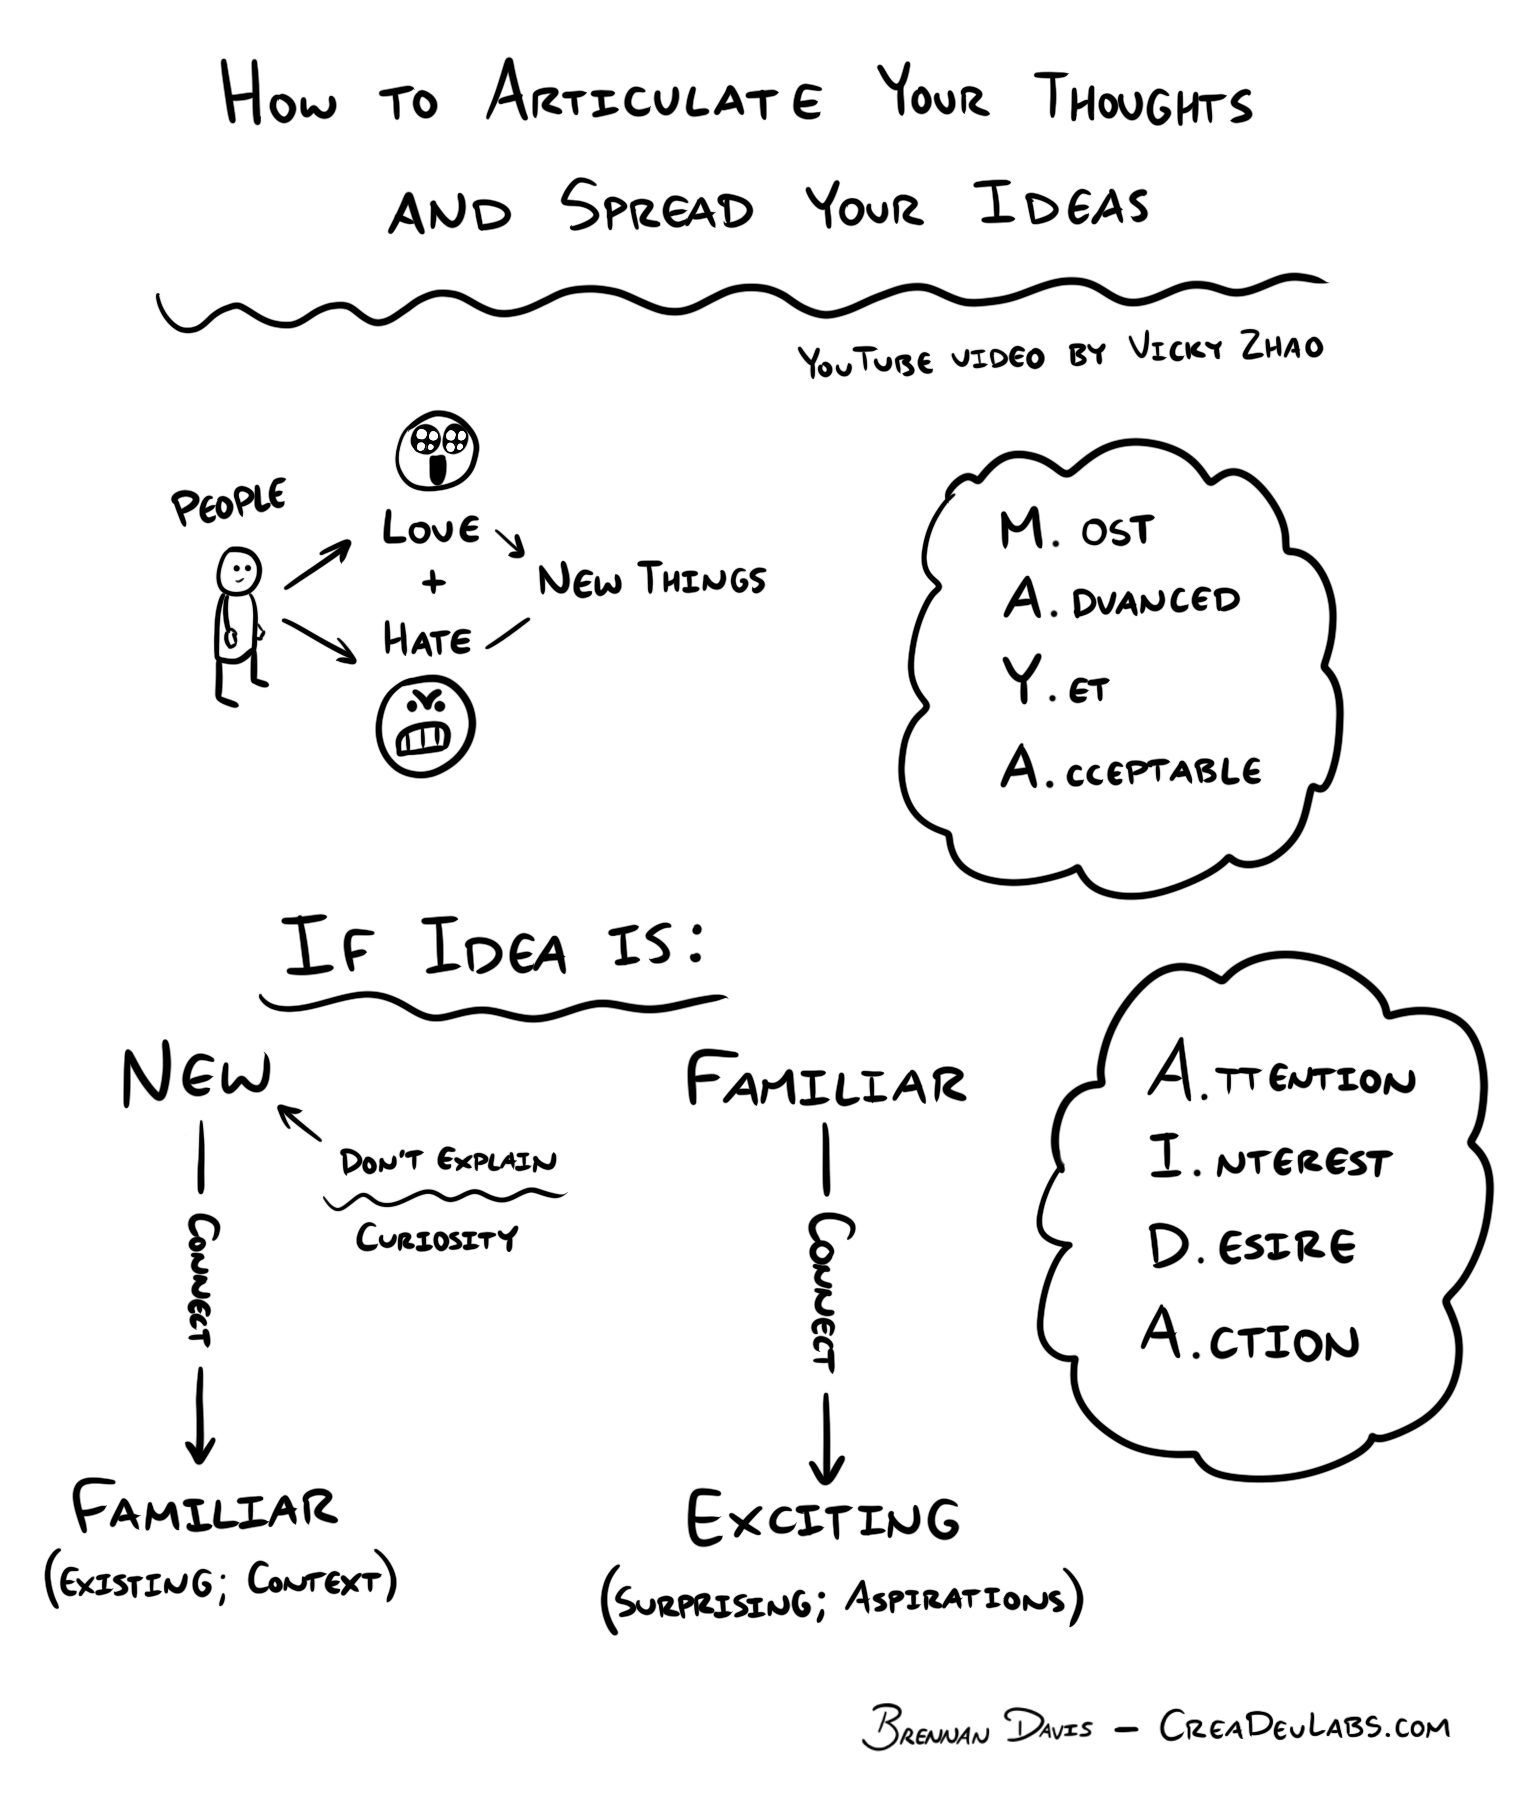 How to Articulate Your Thoughts
and Spread Your Ideas
YouTube video by Vicky Zhao
People
Love
+
Hate
New Things
M. ost
A. dvanced
Y. et
A. cceptable
If Idea is:
New
Don't Explain
Curiosity
Connect
Familiar
(Existing; Context)
Familiar
Connect
Exciting
(Surprising; Aspirations)
A. ttention
I. nterest
D. esire
A. ction
Brennan Davis – CreaDevLabs.com